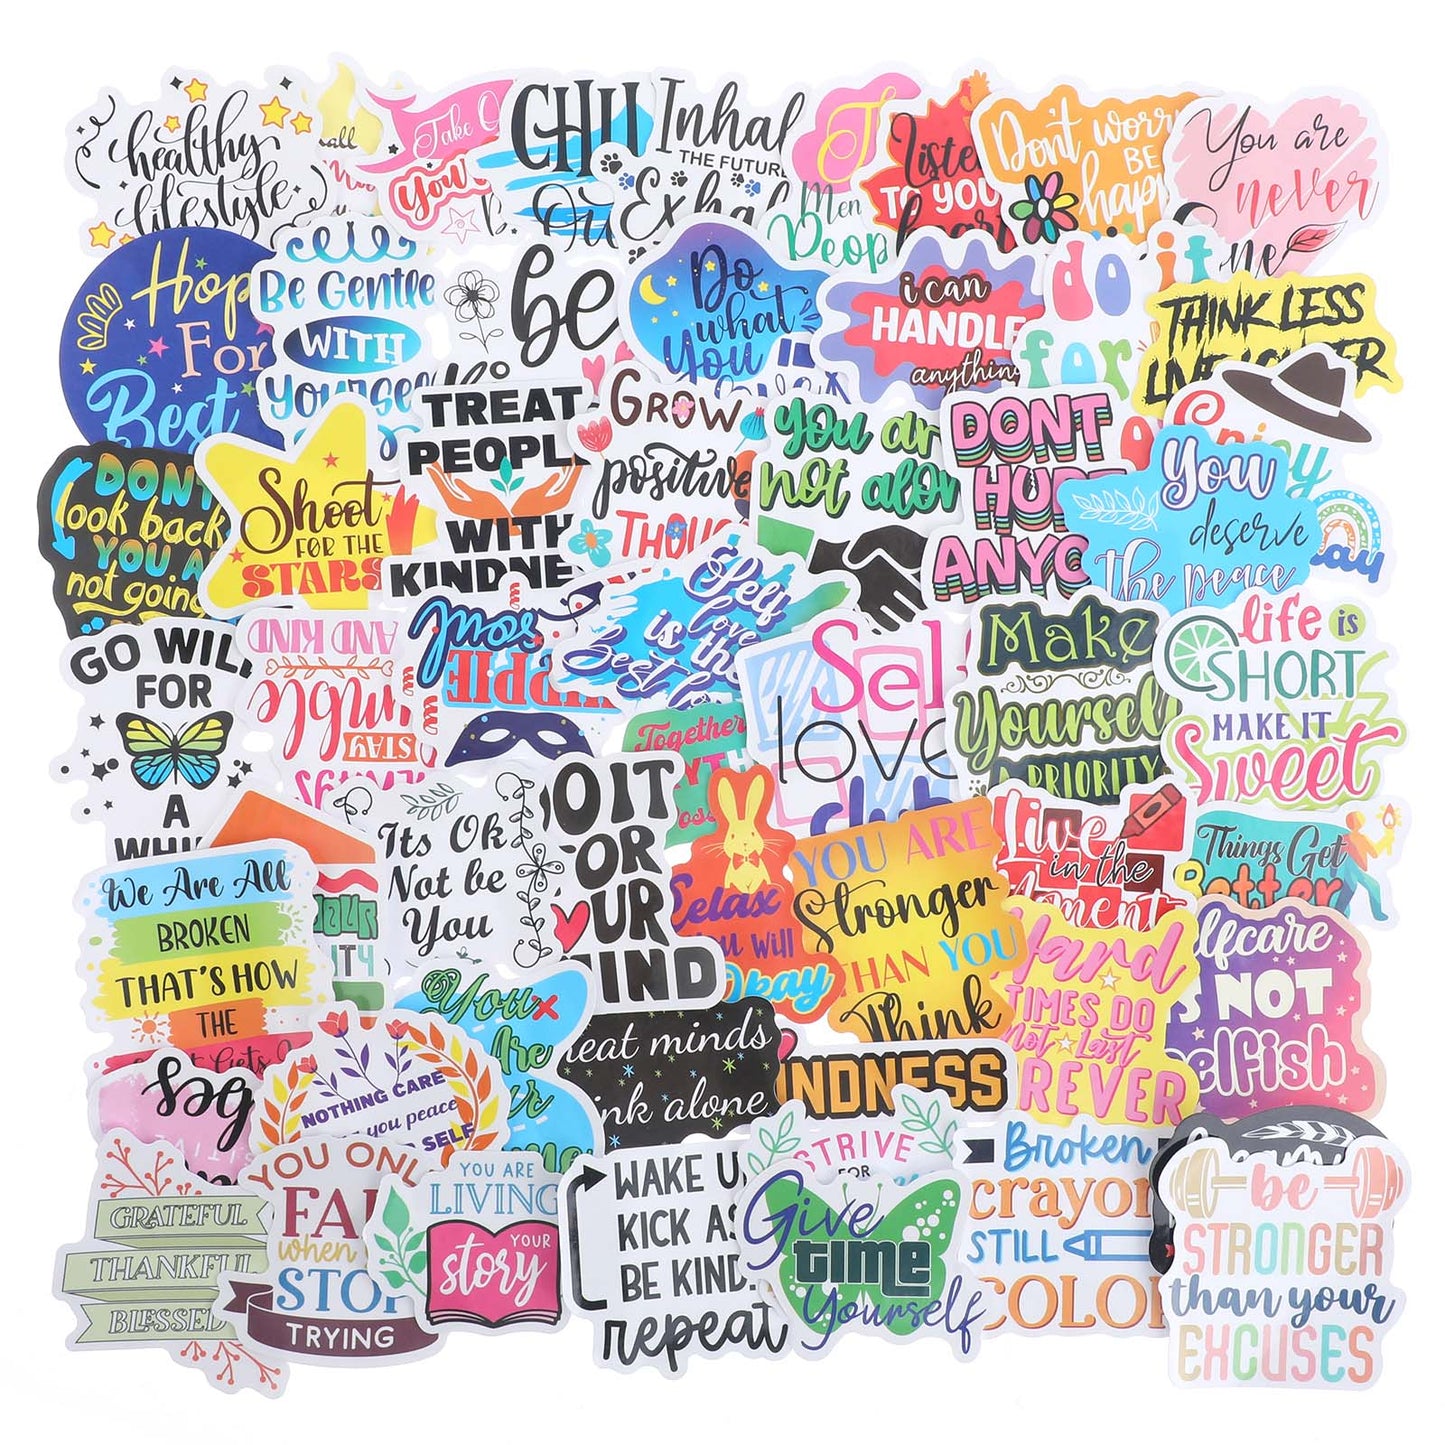 healthy
lifestyle
Take
You
CHILL
Out
Inhal
THE FUTURE
Exhal
Men
Peop
Listen
TO YOU
hear
Don't worry
BE
happ
You are
never
Hope
For
Best
Be Gentle
WITH
Yourself
be
Do
what
You
i can
HANDLE
anything
do it
for
THINK LESS
LIVE
Enjoy
day
DON'T
look back
YOU A
not going
Shoot
FOR THE
STARS
TREAT
PEOPLE
WITH
KINDNE
GROW
positive
THOU
you ar
not alon
DONT
HURT
ANYO
You
deserve
the peace
GO WILL
FOR
A
WHI
AND KIND
STAY
Self
love
is the
Best
Together
Self
love
club
Make
Yourself
A PRIORITY
life is
SHORT
MAKE IT
Sweet
We Are All
BROKEN
THAT'S HOW
THE
Its Ok
Not be
You
DO IT
FOR
YOUR
MIND
Relax
You Will
Okay
YOU ARE
Stronger
THAN YOU
Think
Live
in the
Moment
Things Get
Better
Hard
TIMES DO
Not Last
REVER
elfcare
S NOT
selfish
You
Are
reat minds
ink alone
KINDNESS
Be
NOTHING CARE
you peace
SELF
GRATEFUL
THANKFUL
BLESSED
YOU ONL
FAI
when
STOP
TRYING
YOU ARE
LIVING
YOUR
story
WAKE U
KICK AS
BE KIND.
repeat
STRIVE
FOR
Give
time
Yourself
Broken
crayon
STILL
COLOR
be
STRONGER
than your
EXCUSES